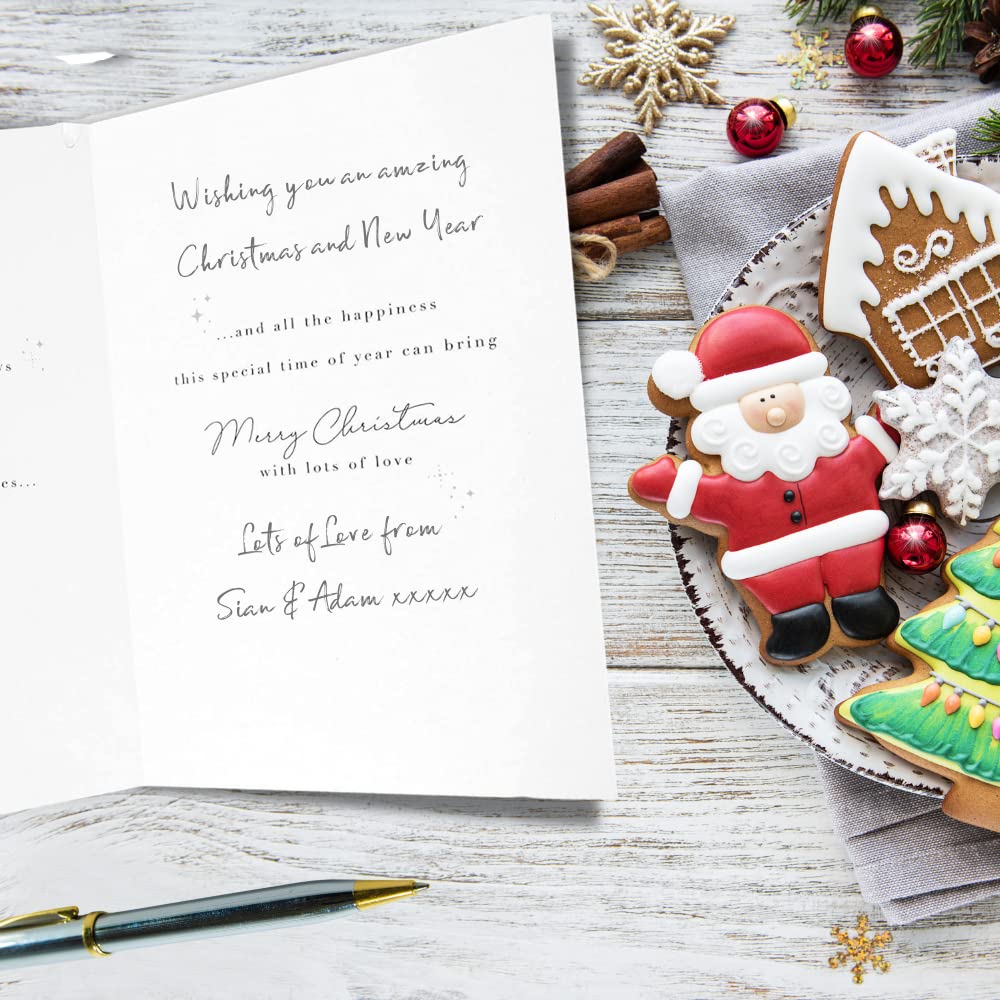 Wishing you an amzing
Christmas and New Year
...and all the happiness
this special time of year can bring
Merry Christmas
with lots of love
Lots of Love from
Sian & Adam xxxxx